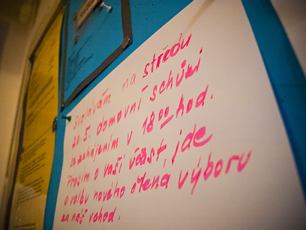 Svolávám na středu
20.5. domovní schůzi
se zahájením v 18 00 hod.
Prosím o Vaši účast, jde
o volbu nového člena výboru
za náš vchod.